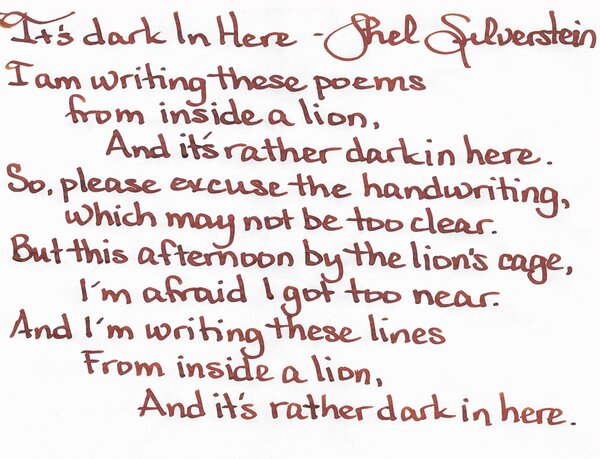 It's dark In Here - Shel Silverstein
I am writing these poems
from inside a lion,
And it's rather dark in here.
So, please excuse the handwriting,
which may not be too clear.
But this afternoon by the lion's cage,
I'm afraid I got too near.
And I'm writing these lines
From inside a lion,
And it's rather dark in here.